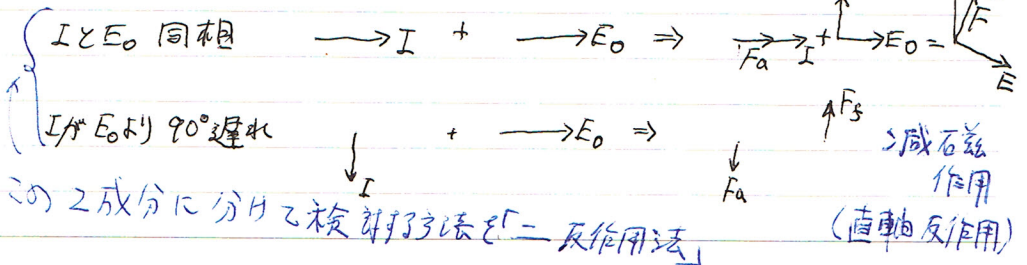 IとE₀ 同相 → I + → E₀ ⇒ Fa I + → E₀ = F E
IがE₀より 90°遅れ I + → E₀ ⇒ Fa Ff
減磁
作用
(直軸反作用)
この2成分に分けて検討する方法を「二反作用法」